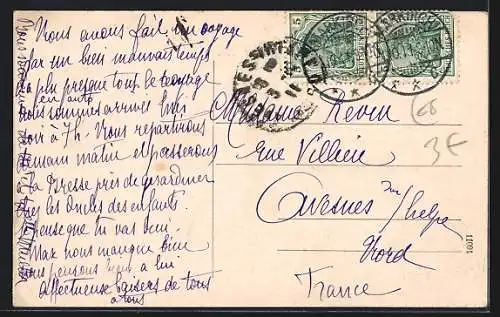 Nous avons fait un voyage
par un bien mauvais temps
a plu presque tout le voyage
en auto
nous sommes arrivés hier
soir à 7h. Nous repartirons
demain matin et passerons
La Bresse près de Gérardmer
chez les oncles des enfants.
Pense que tu vas bien.
Max nous manque bien
nous pensons bien à lui
affectueux baisers de tous
à tous
Madame
rue Villien
Avesnes sur/helpe
Nord
France
5
11091
66
3€